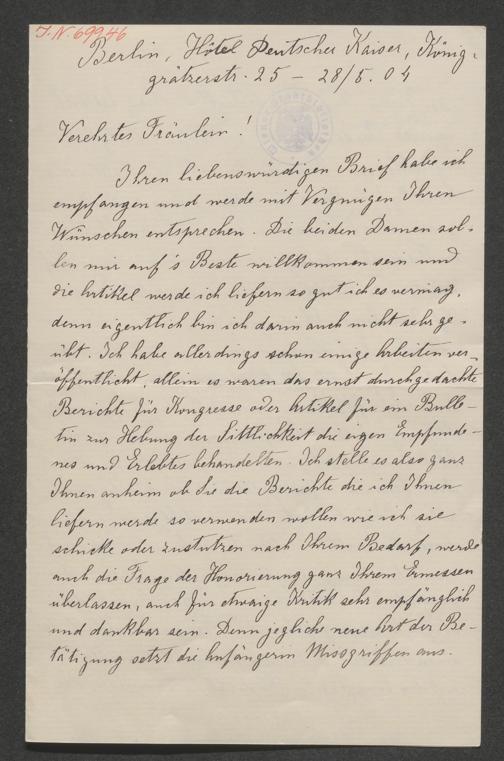 J. N. 69946
Berlin, Hôtel Deutscher Kaiser, König-
grätzerstr. 25 – 28/5. 04
Verehrtes Fräulein!
Ihren liebenswürdigen Brief habe ich
empfangen und werde mit Vergnügen Ihren
Wünschen entsprechen. Die beiden Damen sol-
len mir auf's Beste willkommen sein und
die Artikel werde ich liefern so gut ich es vermag,
denn eigentlich bin ich darin auch nicht sehr ge-
übt. Ich habe allerdings schon einige Arbeiten ver-
öffentlicht, allein es waren das ernst durchgedachte
Berichte für Kongresse oder Artikel für ein Bulle-
tin zur Hebung der Sittlichkeit die eigen Empfunde-
nes und Erlebtes behandelten. Ich stelle es also ganz
Ihnen anheim ob Sie die Berichte die ich Ihnen
liefern werde so verwenden wollen wie ich sie
schicke oder zustutzen nach Ihrem Bedarf, werde
auch die Frage der Honorierung ganz Ihrem Ermessen
überlassen, auch für etwaige Kritik sehr empfänglich
und dankbar sein. Denn jegliche neue Art der Be-
tätigung setzt die Anfängerin Missgriffen aus.